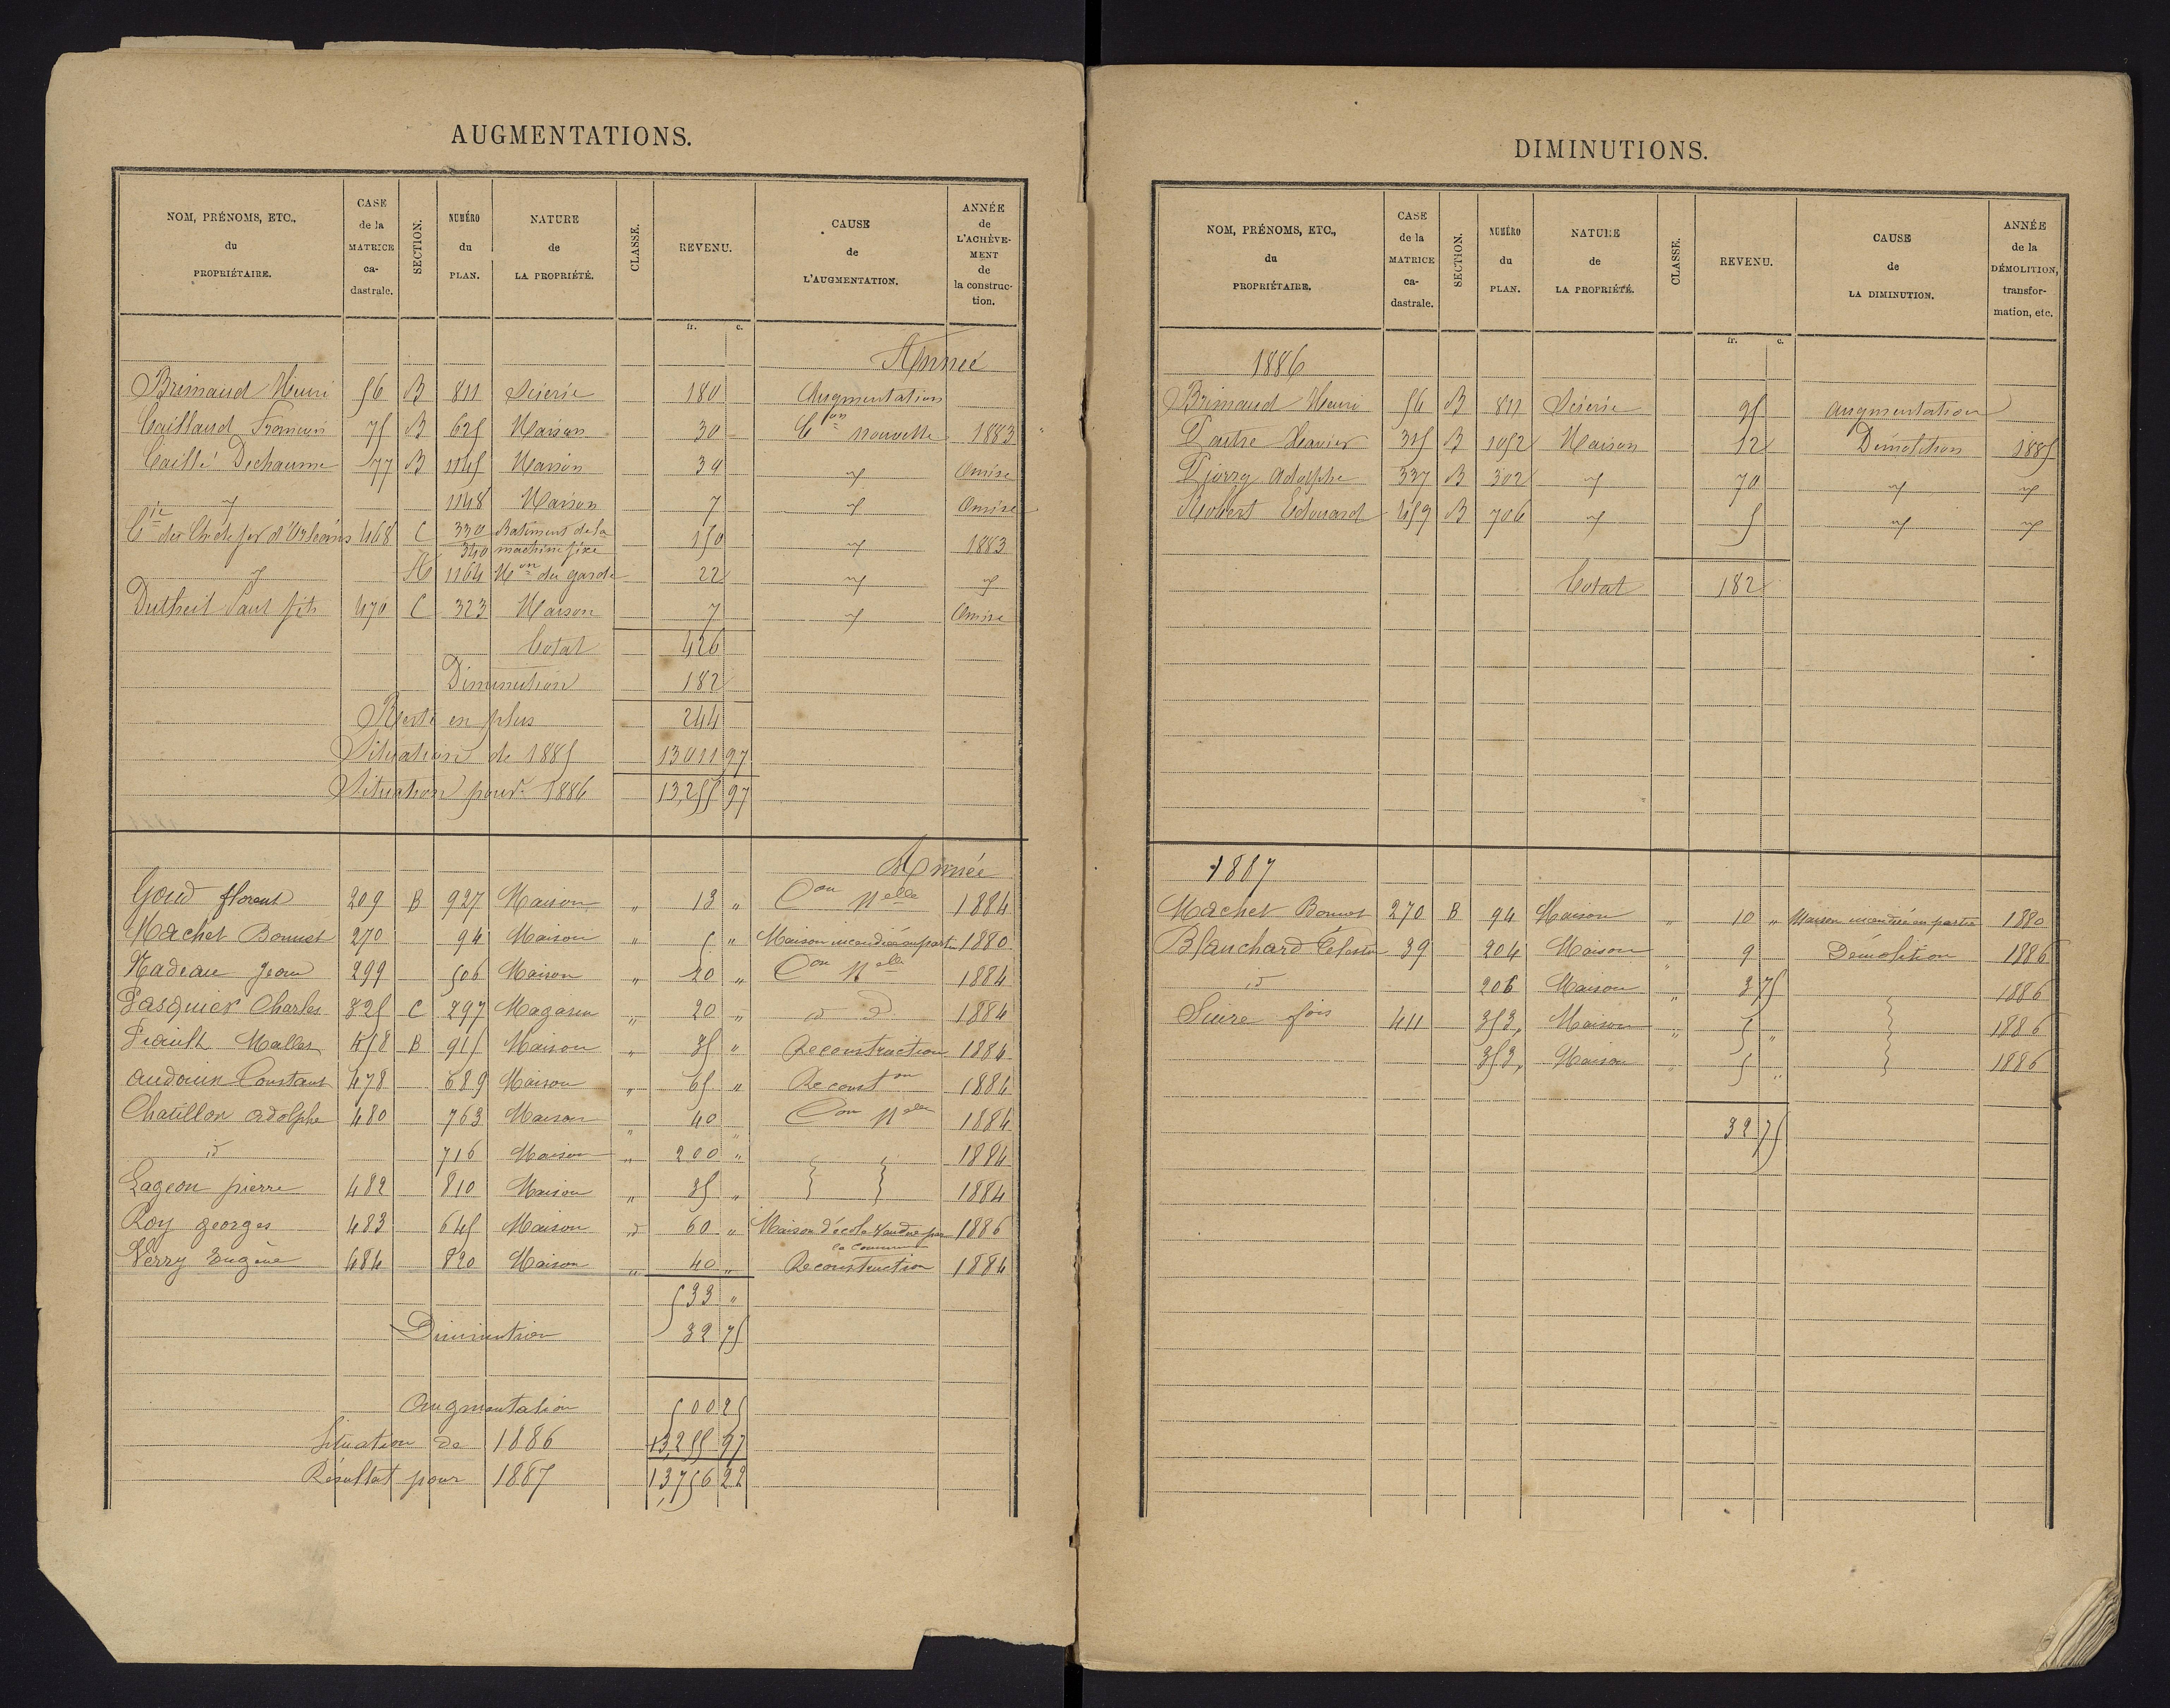 AUGMENTATIONS.
NOM, PRÉNOMS, ETC., du PROPRIÉTAIRE. CASE de la MATRICE ca-dastrale. SECTION. NUMÉRO du PLAN. NATURE de LA PROPRIÉTÉ. CLASSE. REVENU. CAUSE de L'AUGMENTATION. ANNÉE de L'ACHÈVE-MENT de la construc-tion.
fr. c.
Année
Brimaud Henri 56 B 811 Scierie 180 Augmentation
Caillaud François 75 B 625 Maison 30 Con nouvelle 1883
Caillé Dechaume 77 B 1145 Maison 30 id Omise
id 1148 Maison 7 id Omise
Cie des Ch de fer d'Orléans 468 C 330 Batiment de la
340 machine fixe 150 id 1883
id A 1164 Mon du garde 22 id id
Dutheil Paul fils 470 C 323 Maison 7 id Omise
Total 426
Diminution 182
Reste en plus 244
Situation de 1885 13011 97
Situation pour 1886 13,255 97
Année
Goud florent 209 B 927 Maison " 13 " Con Nelle 1884
Machet Bonnet 270 94 Maison " 5 " Maison incendiée en part 1880
Nadeau Jean 299 506 Maison " 20 " Con Nelle 1884
Pasquier Charles 325 C 297 Magasin " 20 " id d 1884
Piault Mallet 458 B 915 Maison " 35 " Reconstruction 1884
Audoux Constant 478 689 Maison " 65 " Reconston 1884
Chatillon Adolphe 480 763 Maison " 40 " Con Nelle 1884
id 716 Maison " 200 " 1884
Lageon pierre 482 810 Maison " 35 " 1884
Roy georges 483 645 Maison d 60 " Maison d'école vendue par 1886
la Commune
Verry Eugène 484 820 Maison " 40 " Reconstruction 1884
533 "
Diminution 32 75
Augmentation 500 25
Situation de 1886 13,255 97
Résultat pour 1887 13,756 22
DIMINUTIONS.
NOM, PRÉNOMS, ETC., du PROPRIÉTAIRE. CASE de la MATRICE ca-dastrale. SECTION. NUMÉRO du PLAN. NATURE de LA PROPRIÉTÉ. CLASSE. REVENU. CAUSE de LA DIMINUTION. ANNÉE de la DÉMOLITION, transfor-mation, etc.
fr. c.
1886
Brimaud Henri 56 B 811 Scierie 95 Augmentation
315 B 1052 Maison 12 Démolition 1885
Adolphe 337 B 302 id 70 id id
Robert Edouard 459 B 706 id 5 id id
Total 182
1887
Machet Bonnet 270 B 94 Maison " 10 " Maison incendiée en partie 1880
Blanchard Célestin 39 204 Maison 9 Démolition 1886
id 206 Maison " 3 75 1886
Suire 411 353 Maison " 5 " 1886
353 Maison " 5 " 1886
32 75